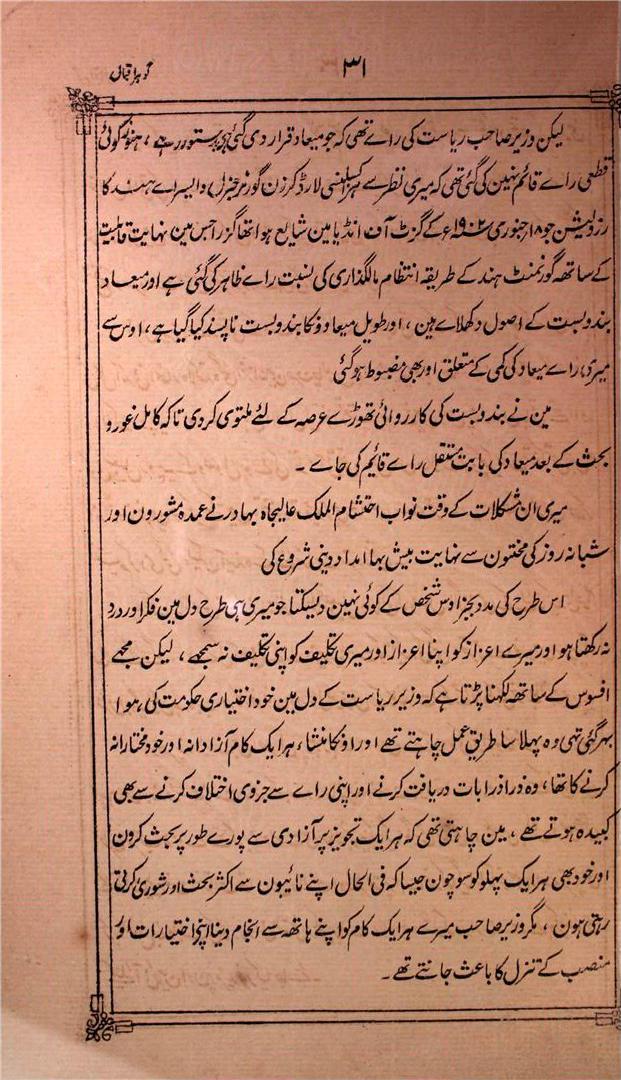 گوہر اقبال
۳۱
لیکن وزیر صاحب ریاست کی راے تھی کہ جو میعاد قرار دی گئی ہو بدستور رہے ، ہنوز کوئی
قطعی راے قائم نہین کی گئی تھی کہ میری نظر سے ہزاکسلنسی لارڈ کرزن گورنر جنرل وایسراے ہند کا
رزولیشن جو ۱۸ جنوری ۱۹۰۲ء کے گزٹ آف انڈیا مین شایع ہوا تھا گزرا جس مین نہایت قابلیت
کے ساتھ گورنمنٹ ہند کے طریقہ انتظام مالگذاری کی نسبت راے ظاہر کی گئی ہے اور میعاد
بندوبست کے اصول دکھلاے ہین ، اور طویل میعاوؤ کا بندوبست ناپسند کیا گیا ہے ، اوس سے
میری راے میعاد کی کمی کے متعلق اور بھی مضبوط ہو گئی
مین نے بندوبست کی کارروائی تھوڑے عرصہ کے لئے ملتوی کر دی تاکہ کامل غور و
بحث کے بعد میعاد کی بابت مستقل راے قائیم کی جاے ۔
میری ان مشکلات کے وقت نواب احتشام الملک عالیجاہ بہادر نے عمدہ مشورون اور
شبانہ روز کی محنتون سے نہایت بیش بہا امداد دینی شروع کی
اس طرح کی مدد بجز اوس شخص کے کوئی نہین دیسکتا جو میری ہی طرح دل مین فکر اور درد
نہ رکھتا ہو اور میرے اعزاز کو اپنا اعزاز اور میری تکلیف کو اپنی تکلیف نہ سمجھے ، لیکن مجھے
افسوس کے ساتھ لکھنا پڑتا ہے کہ وزیر ریاست کے دل مین خود اختیاری حکومت کی ہوا
بہر گئی تہی وہ پہلا سا طریق عمل چاہتے تھے اور اونکا منشاء ہر ایک کام آزادانہ اور خود مختارانہ
کرنے کا تھا ، وہ ذرا ذرا بات دریافت کرنے اور اپنی راے سے جزوی اختلاف کرنے سے بھی
کبیدہ ہوتے تھے ، مین چاہتی تھی کہ ہر ایک تجویز پر آزادی سے پورے طور پر بحث کرون
اور خود بھی ہر ایک پہلو کو سوچون جیسا کہ فی الحال اپنے نائیبون سے اکثر بحث اور شوریٰ کرتی
رہتی ہون ، مگر وزیر صاحب میرے ہر ایک کام کو اپنے ہاتھ سے انجام دینا اپنے اختیارات اور
منصب کے تنزل کا باعث جانتے تھے ۔